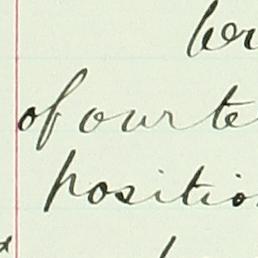 ber
of our te
positio